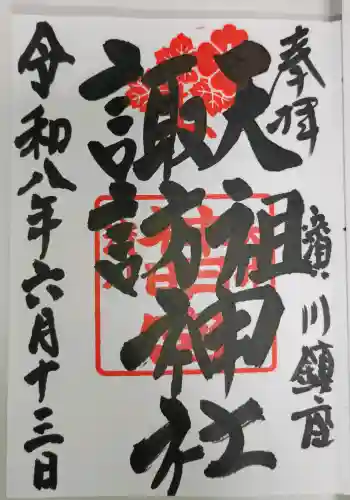 奉拝
濱川鎮座
天祖神社
諏訪神社
令和八年六月十三日